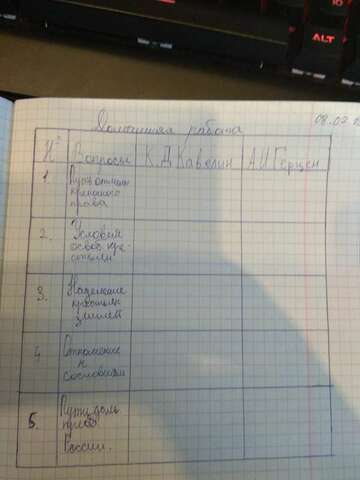 ALT
08.02
Домашняя работа
N° Вопросы К.Д Кавелин А.И Герцен
1. Пути отмены
крепостного
права
2. Условия
освоб. кре-
стьян
3. Наделение
крестьян
землей
4 Отношение
к
сословиям
5. Пути даль
преоб
России.